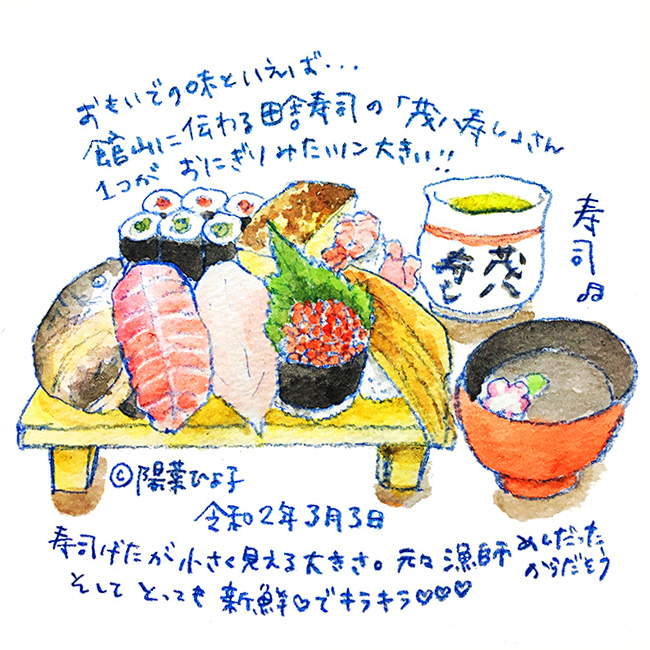 おもいでの味といえば・・・
館山に伝わる田舎寿司の「茂八寿し」さん
1つが おにぎりみたいに大きい!!
寿司
茂八
寿し
©陽菜ひよ子
令和2年3月3日
寿司げたが小さく見える大きさ。元々漁師めしだった
からだそう
そして とっても 新鮮♡でキラキラ♡♡♡